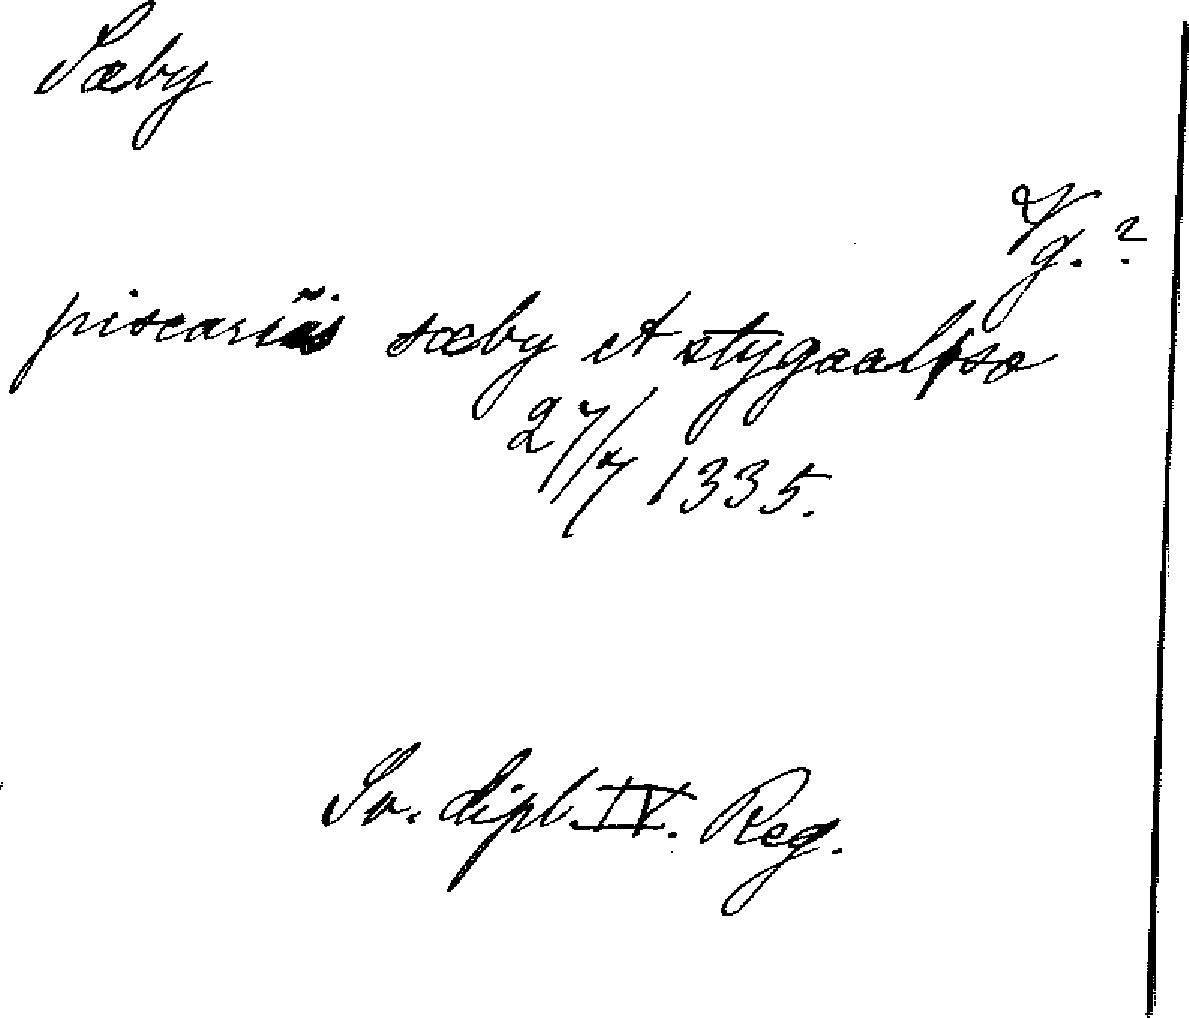 Sæby
Vg. ?
piscariis sæby et stygaalsø
27/7 1335.
Sv. dipl. IV. Reg.